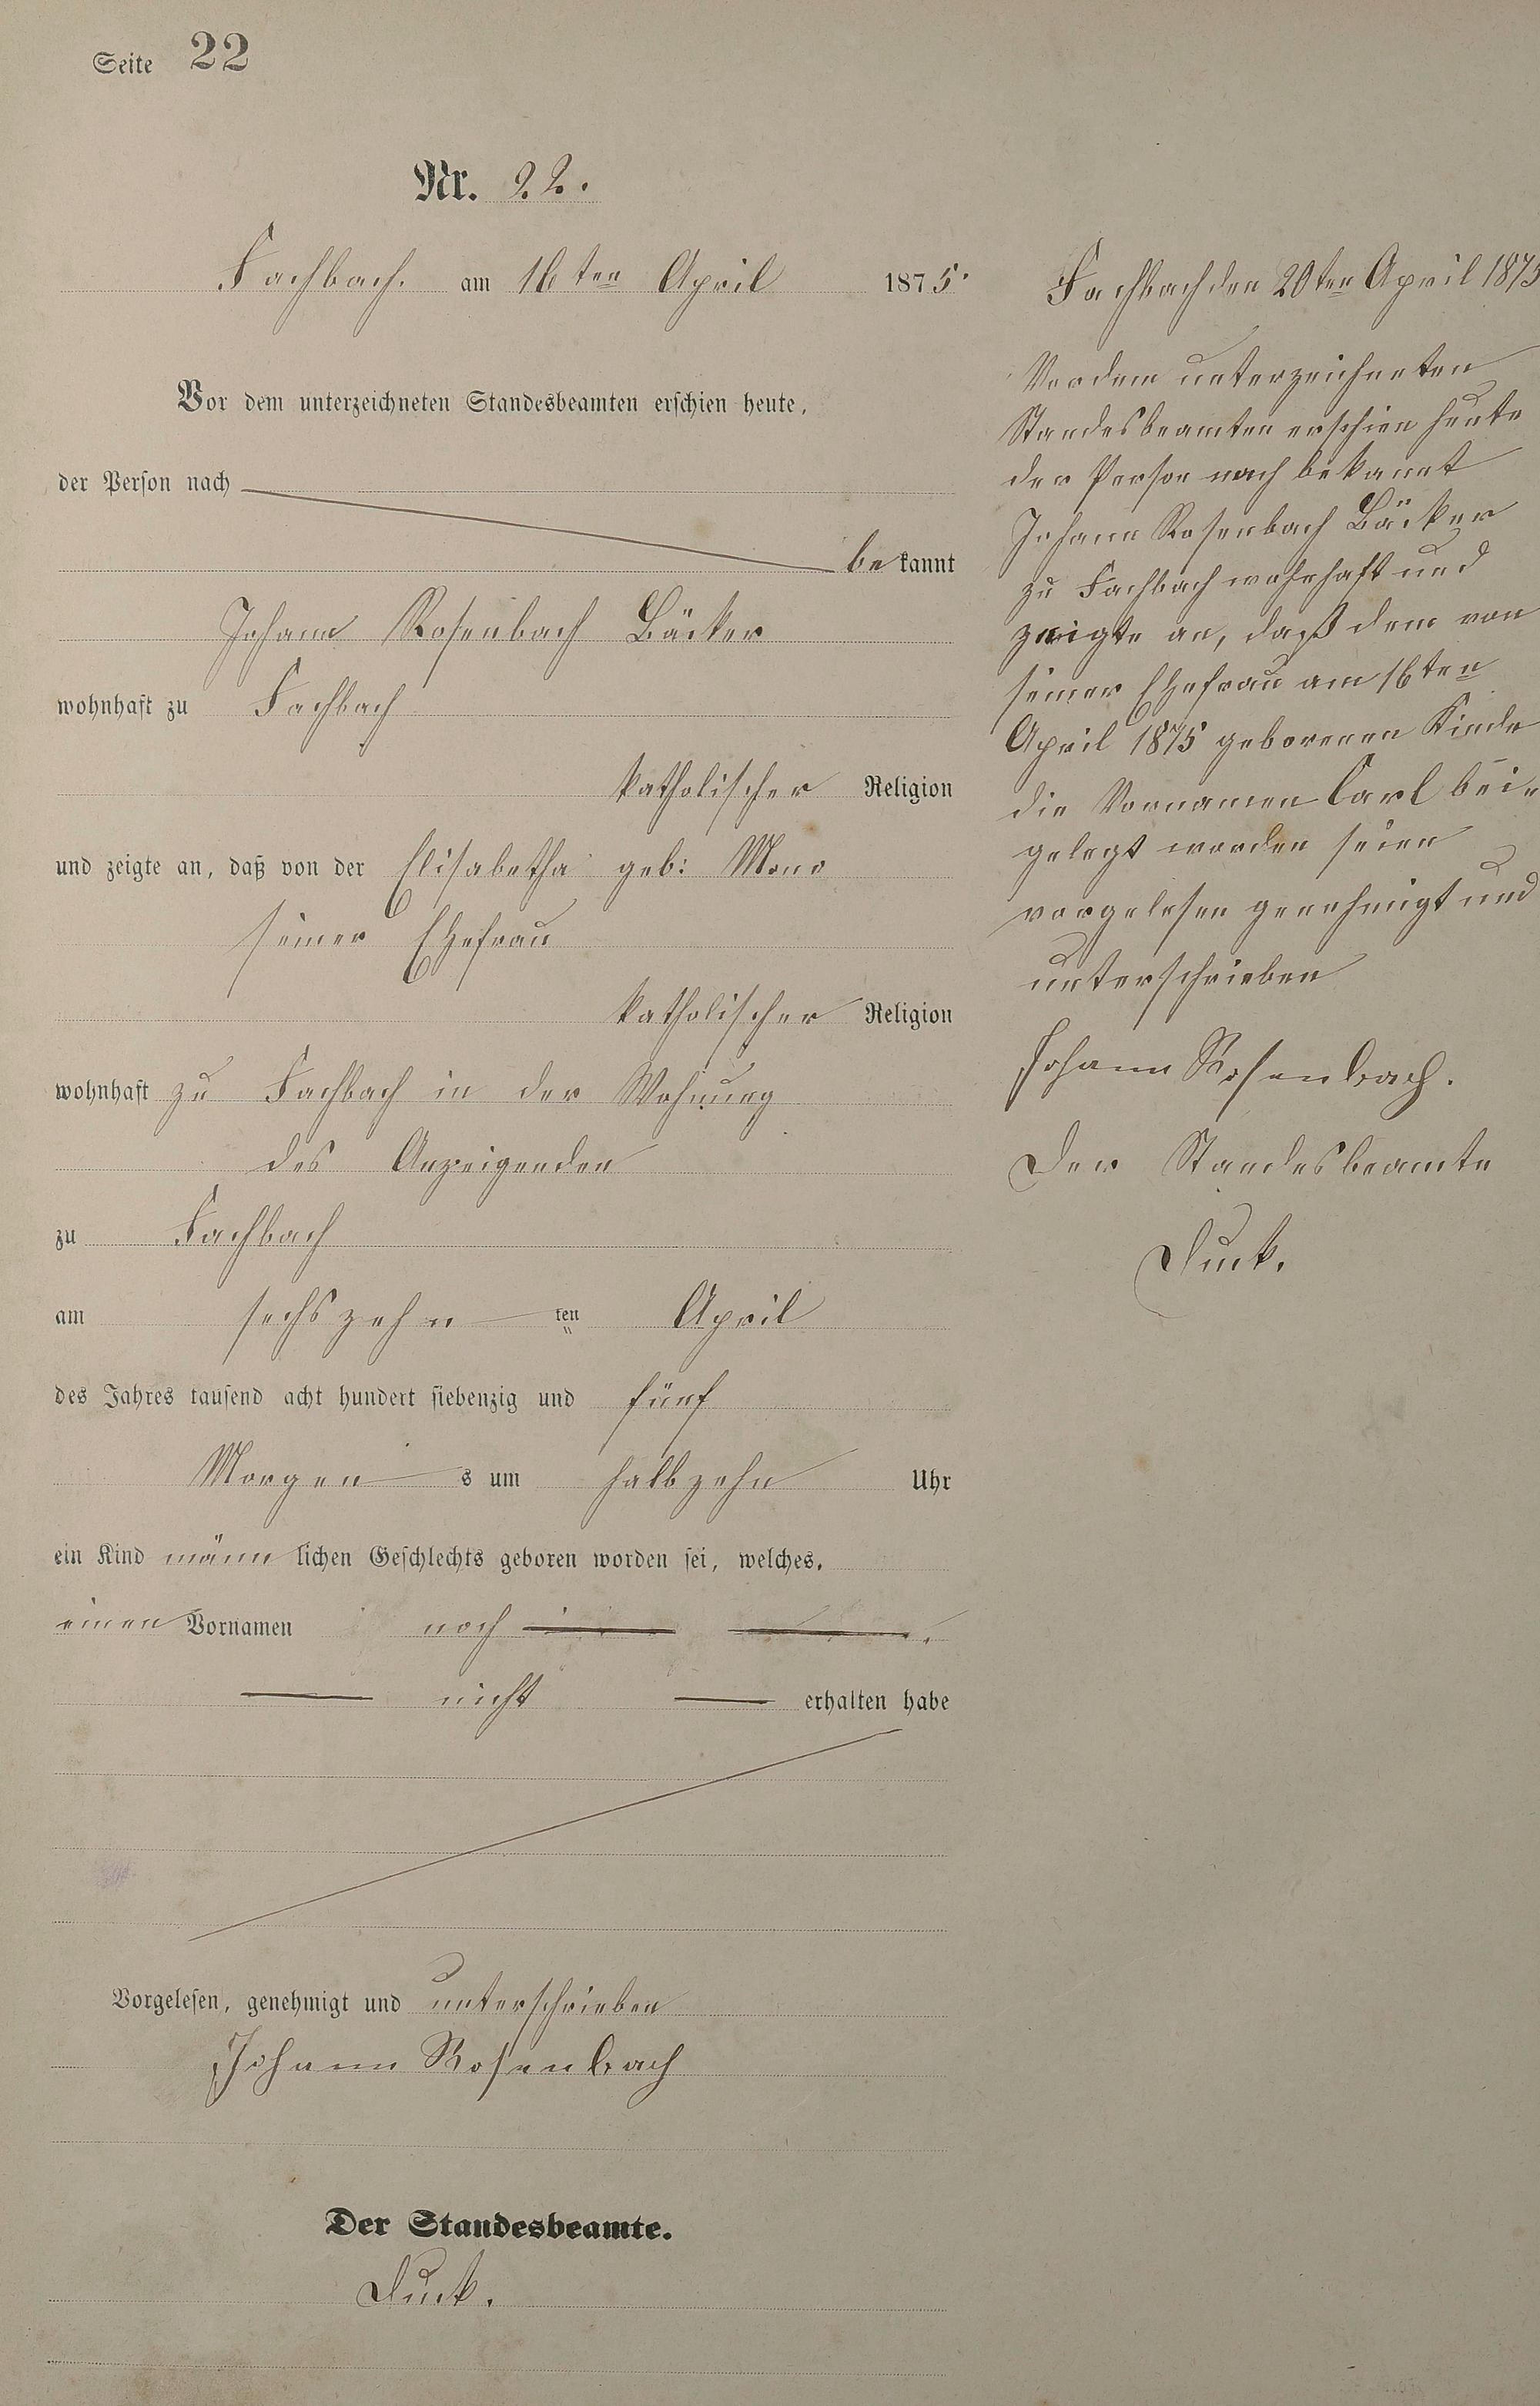 Seite 22
Nr. 22.
Fachbach. am 16ten April 1875.
Vor dem unterzeichneten Standesbeamten erschien heute,
der Person nach
bekannt
Johann Rosenbach Bäcker
wohnhaft zu Fachbach
katholischer Religion
und zeigte an, daß von der Elisabetha geb:
seiner Ehefrau
katholischer Religion
wohnhaft zu Fachbach in der Wohnung
des Anzeigenden
zu Fachbach
am sechszehn ten April
des Jahres tausend acht hundert siebenzig und fünf
Morgen s um halb zehn Uhr
ein Kind männlichen Geschlechts geboren worden sei, welches,
einen Vornamen noch
nicht erhalten habe
Vorgelesen, genehmigt und unterschrieben
Johann Rosenbach
Der Standesbeamte.
Fachbach den 20ten April 1875
Vor dem unterzeichneten
Standesbeamten erschien heute
der Person nach bekannt
Johann Rosenbach Bäcker
zu Fachbach wohnhaft und
zeigte an, daß dem von
seiner Ehefrau am 16ten
April 1875 geborenen Kinde
die Vornamen Carl bei-
gelegt worden seien
vorgelesen genehmigt und
unterschrieben
Johann Rosenbach.
Der Standesbeamte